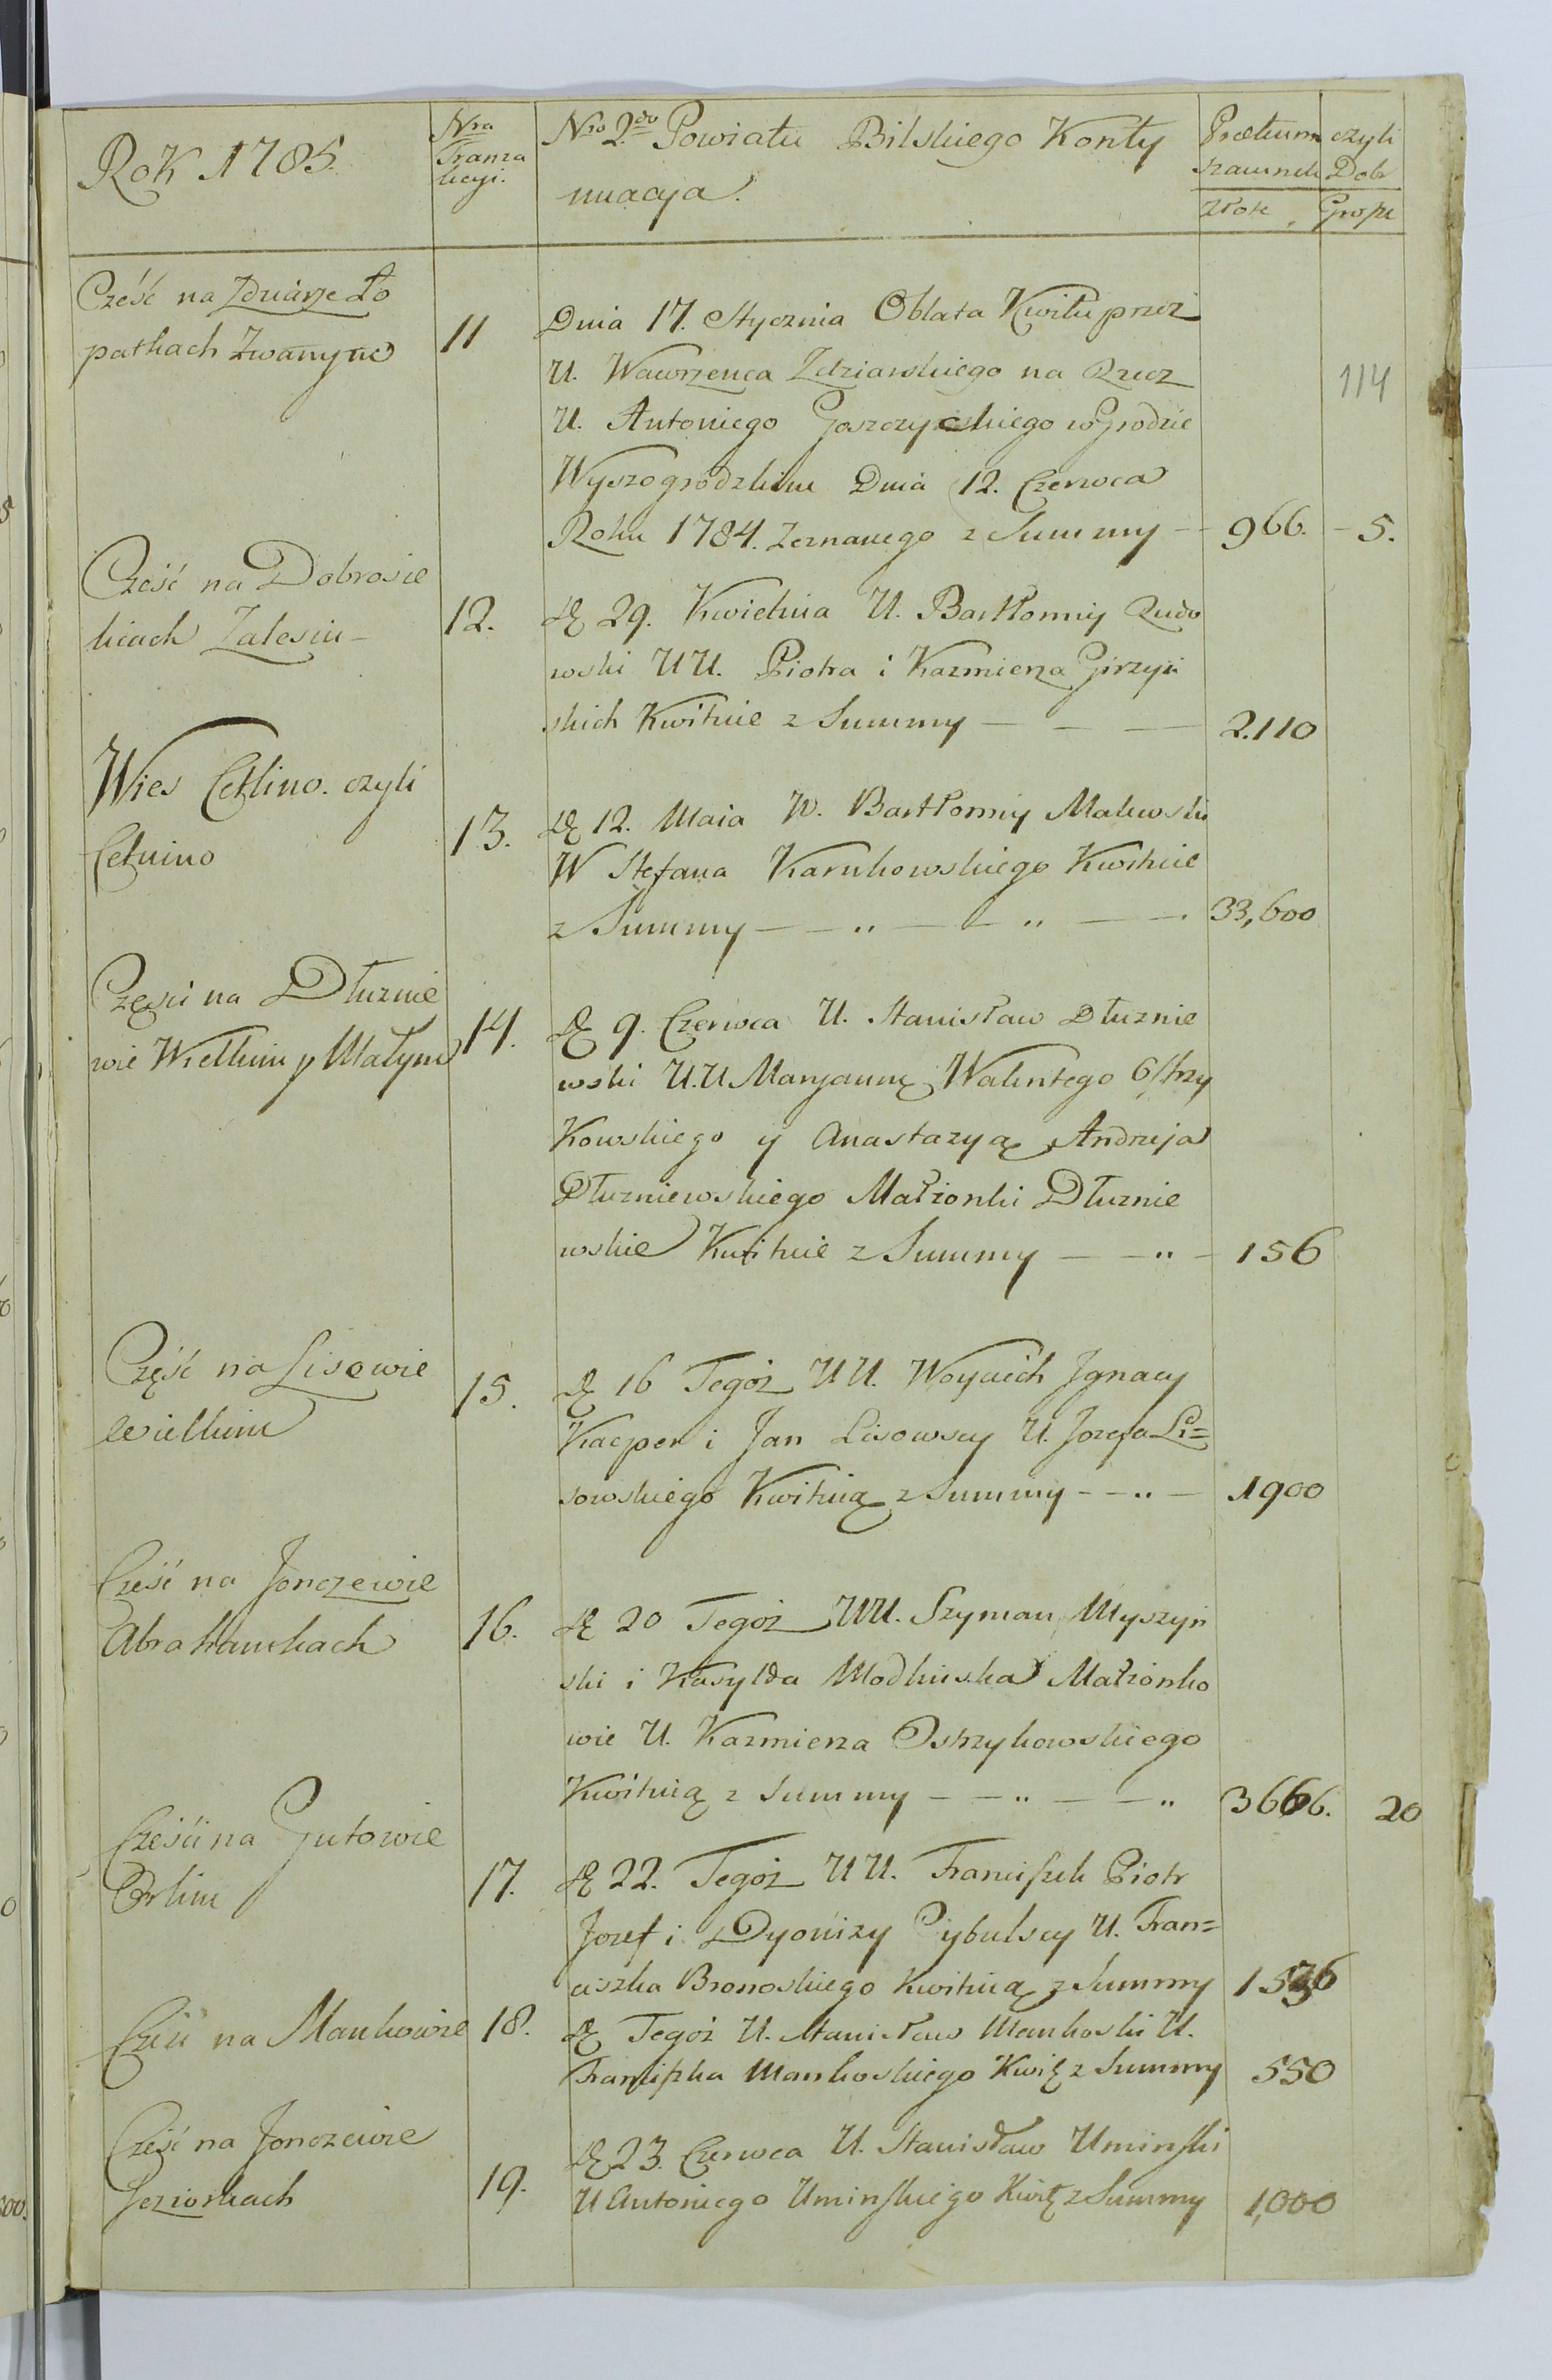 Rok 1785.
Nra
Tranza
kcyi.
Nro 2do Powiatu Bilskiego Konty
nuacya.
Prætium czyli
szacunek Dobr
złote Grosze
Cześć na Zdziarze Ło
patkach Zwanym
11
Dnia 17. Stycznia Oblata Kwitu przez
U. Wawrzenca Zdziarskiego na Rzecz
114
U. Antoniego Goszczyckiego w Grodzie
Wyszogrodzkim Dnia 12. Czerwca
Roku 1784. Zeznanego z Summy - 966. - 5.
Cześć na Dobrosie
licach Zalesiu -
12.
D 29. Kwietnia U. Bartłomiy Rudo
wski UU. Piotra i Kazmierza Girzyń
skich Kwituie z Summy — — — 2.110
Wies Cetlino. czyli
Cetnino
13.
D 12. Maia W. Bartłomiy Malewski
W Stefana Karnkowskiego Kwituie
z Summy — — „ — — „ — — . 33,600
Części na Dłuznie
wie Wielkim y Małym
14.
D 9. Czerwca U. Stanisław Dłuznie
wski U.U Maryannę Walentego Ostrzy
Kowskiego y Anastazyą Andrzeja
Dłuzniewskiego Małżonki Dłuznie
wskie Kwituie z Summy — — „ - 156
Część na Lisowie
Wielkim
15.
D 16 Tegóż UU. Woyciech Jgnacy
Kacper i Jan Lisowscy U. Jozefa Li=
sowskiego Kwituią z Summy - - „ — 1900
Cześć na Jonczewie
Abrahamkach
16.
D 20 Tegóż UU. Szyman Myszyń
ski i Kasylda Modlińska Małżonko
wie U. Kazmierza Ostrzykowskiego
Kwituią z Summy — — „ — — „ 3666. 20
Cześci na Gutowie
Orlim
17.
D 22. Tegóż UU. Franciszek Piotr
Jozef i Dyonizy Cybulscy U. Fran=
ciszka Bronoskiego Kwituią z Summy 1536
Cześć na Mankowie
18.
D Tegóż U. Stanisław Mankoski U.
Franciszka Mankoskiego Kwię z Summy 550
Cześć na Jonczewie
Jeziorkach
19.
D 23. Czerwca U. Stanisław Uminski
U Antoniego Uminskiego Kwitę z Summy 1,000